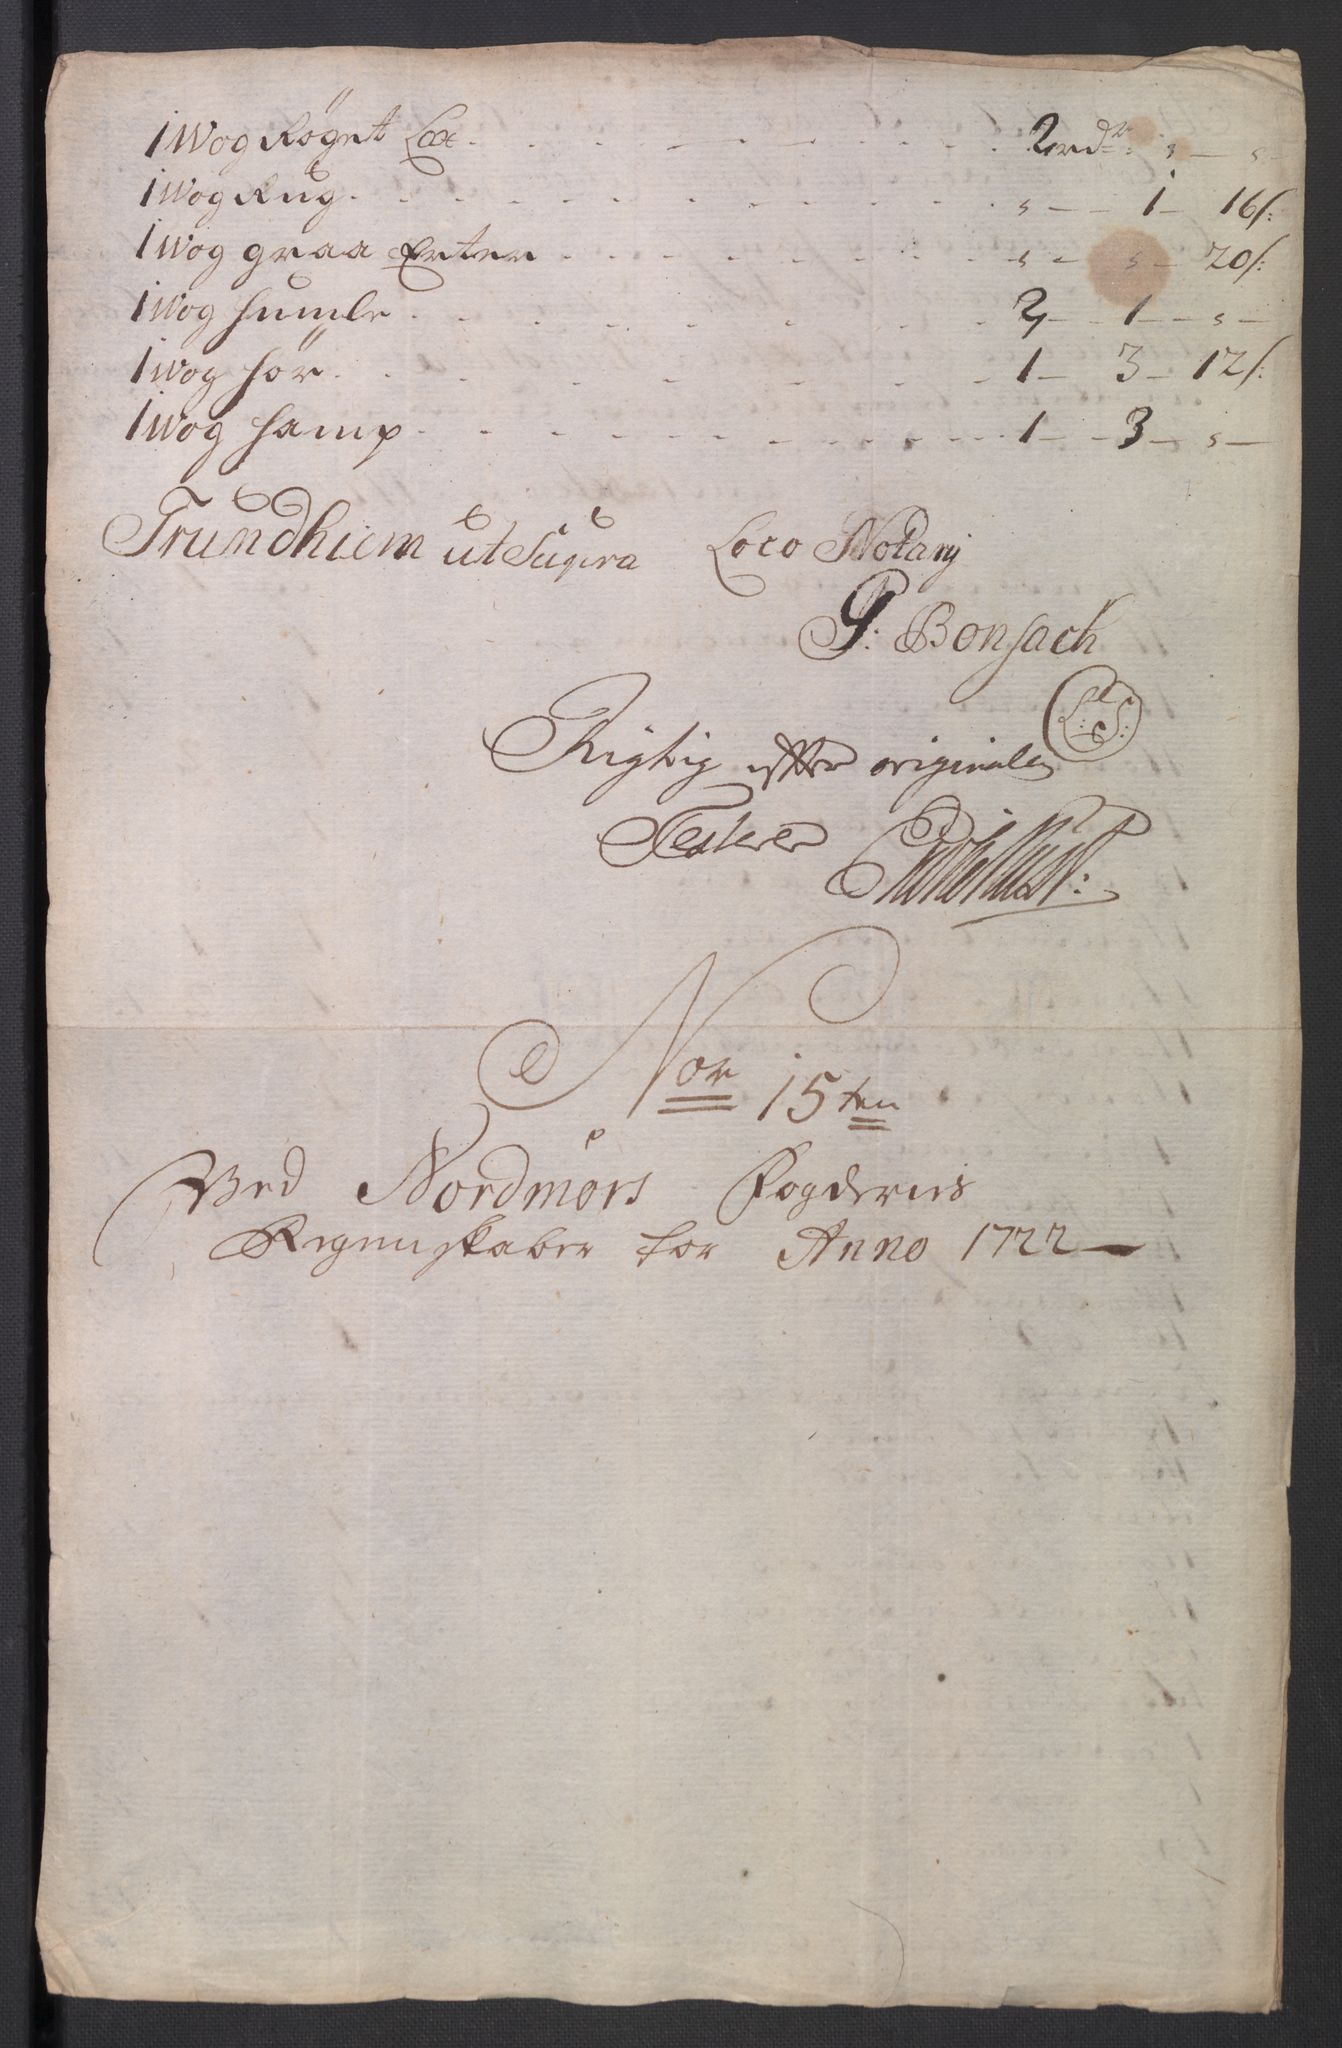 1 Wog Röget Lax - - - 2 rdr: s — s —
1 Wog Rug - - - s — 1 — 16 s:
1 Wog graa Erter - - - s — s — 20 s:
1 Wog humle - - - 2 — 1 — s —
1 Wog hör - - - 1 — 3 — 12 s:
1 Wog hamp - - - 1 — 3 — s —
Trundhiem ut Supra Loco Notarij
P: Bonsach
L: S:
Rigtig efter originalen
Testerer
Nor 15ten
Ved Nordmörs Fogderies
Regenskaber for Anno 1722 —